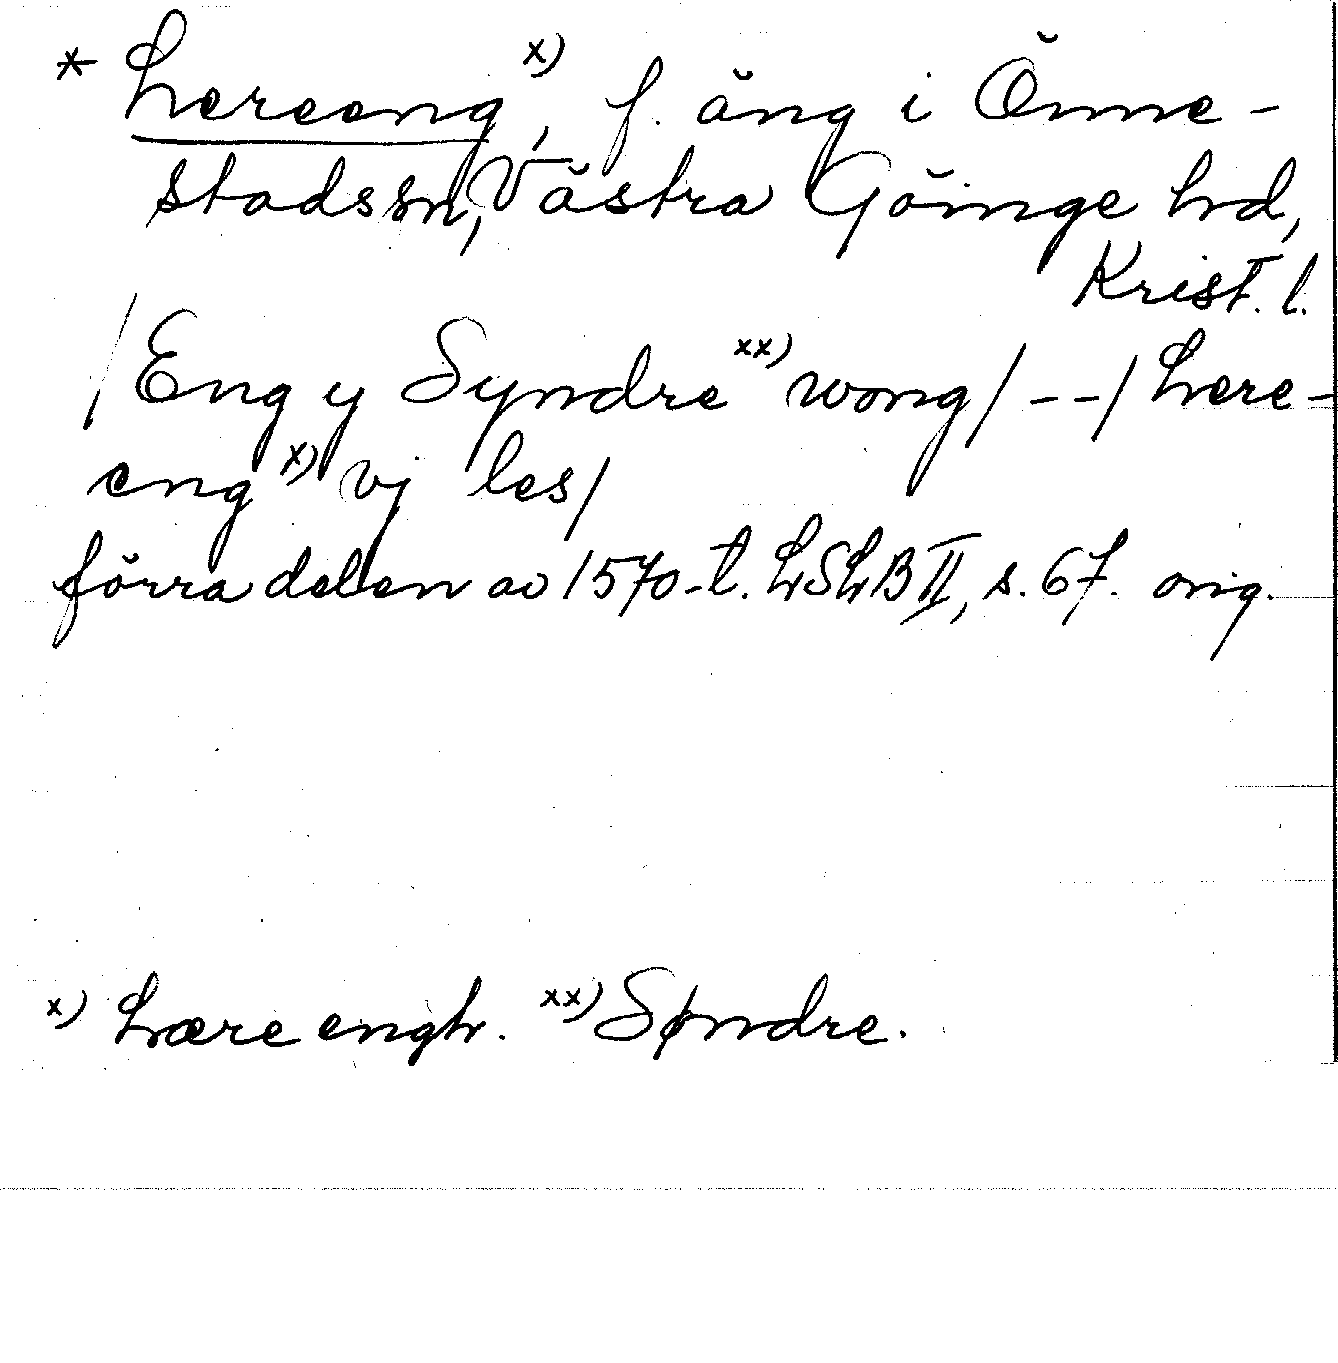 * hereeng x), f. äng i Önne-
stads sn, Västra Göinge hd,
Krist. l.
/Eng y Syndre xx) wong/ --/ here-
eng x) vj les/
förra delen av 1570-t. LSLB II, s. 67. orig.
x) hære engh. xx) Søndre.